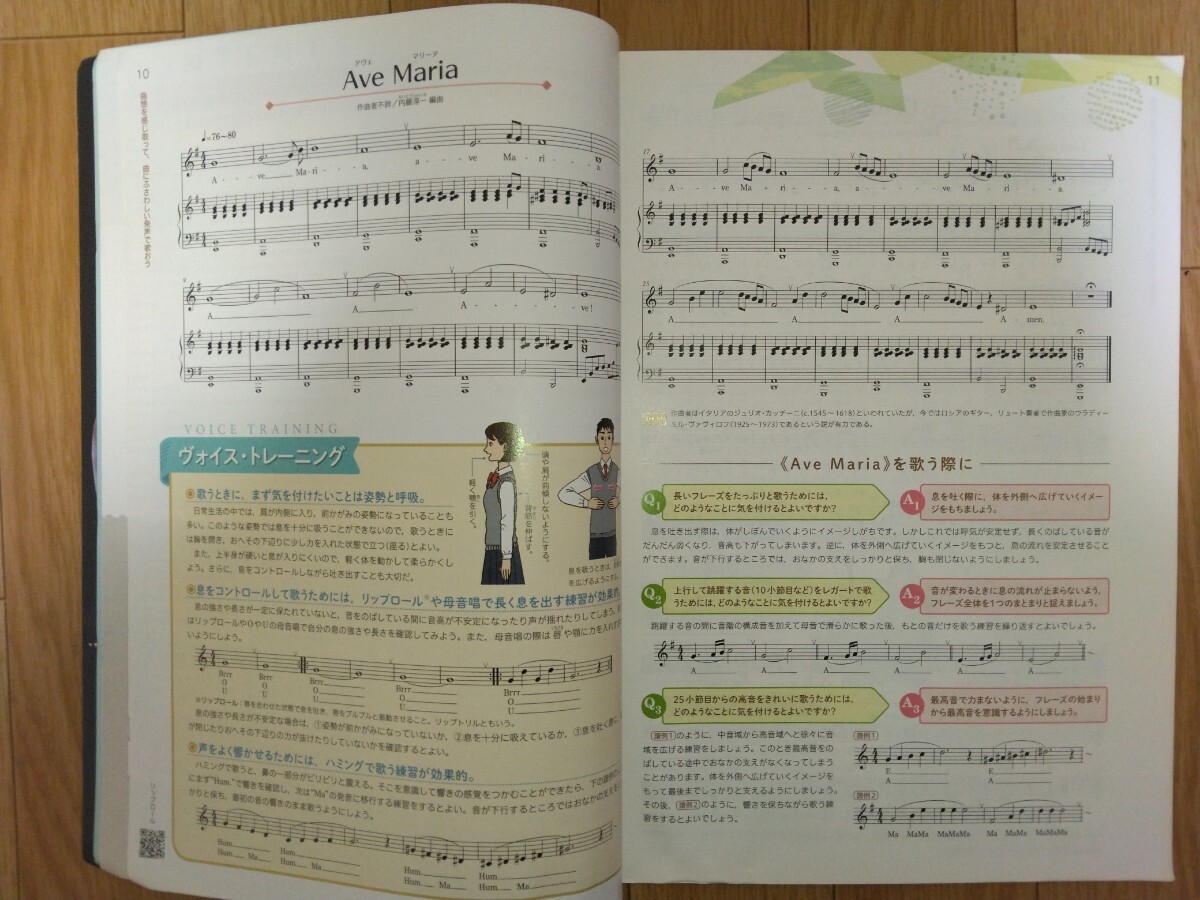 10
曲想を感じ取って、曲にふさわしい発声で歌おう
アヴェ マリーア
Ave Maria
作曲者不詳/内藤淳一 編曲
♩=76〜80
A - - - ve Ma - ri - a, a - ve Ma - ri - a.
9
A A A - - - ve!
VOICE TRAINING
ヴォイス・トレーニング
歌うときに、まず気を付けたいことは姿勢と呼吸。
日常生活の中では、肩が内側に入り、前かがみの姿勢になっていることも
多い。このような姿勢では息を十分に吸うことができないので、歌うときに
は胸を開き、おへその下辺りに少し力を入れた状態で立つ(座る)とよい。
また、上半身が硬いと息が入りにくいので、軽く体を動かして柔らかくし
よう。さらに、息をコントロールしながら吐き出すことも大切だ。
軽く顎を引く。
背筋を伸ばす。
頭や肩が前傾しないようにする。
息を吸うときは、
を広げるようにする。
息をコントロールして歌うためには、リップロール※や母音唱で長く息を出す練習が効果的。
息の強さや長さが一定に保たれていないと、音をのばしている間に音高が不安定になったり声が揺れたりしてしまう。
はリップロールやOやUの母音唱で自分の息の強さや長さを確認してみよう。また、母音唱の際は唇や顎に力を入れす
いようにしよう。
Brrr Brrr Brrr Brrr Brrr
O O O O O
U U U U U
※リップロール:唇を合わせた状態で息を吐き、唇をプルプルと振動させること。リップトリルともいう。
息の強さや長さが不安定な場合は、①姿勢が前かがみになっていないか、②息を十分に吸えているか、③息を吐く際に
が閉じたりおへその下辺りの力が抜けたりしていないかを確認するとよい。
声をよく響かせるためには、ハミングで歌う練習が効果的。
ハミングで歌うと、鼻の一部分がビリビリと震える。そこを意識して響きの感覚をつかむことができたら、下の
にまず“Hum.”で響きを確認し、次は“Ma”の発音に移行する練習をするとよい。音が下行するところではおなかの支えを
かりと保ち、最初の音の響きのまま歌うようにしよう。
Hum. Hum. Hum. Hum.
Hum. Ma Hum. Ma Hum. Ma Hum. Ma
リップロール
11
17
A - ve Ma - ri - a, a - ve Ma - ri - a.
25
A A A A - men.
作曲者はイタリアのジュリオ・カッチーニ(c.1545〜1618)といわれていたが、今ではロシアのギター、リュート奏者で作曲家のウラディー
ミル・ヴァヴィロフ(1925〜1973)であるという説が有力である。
《Ave Maria》を歌う際に
Q1 長いフレーズをたっぷりと歌うためには、
どのようなことに気を付けるとよいですか?
A1 息を吐く際に、体を外側へ広げていくイメー
ジをもちましょう。
息を吐き出す際は、体がしぼんでいくようにイメージしがちです。しかしこれでは呼気が安定せず、長くのばしている音が
だんだん弱くなり、音高も下がってしまいます。逆に、体を外側へ広げていくイメージをもつと、息の流れを安定させること
ができます。音が下行するところでは、おなかの支えをしっかりと保ち、胸も閉じないようにしましょう。
Q2 上行して跳躍する音(10小節目など)をレガートで歌
うためには、どのようなことに気を付けるとよいですか?
A2 音が変わるときに息の流れが止まらないよう、
フレーズ全体を1つのまとまりと捉えましょう。
跳躍する音の間に音階の構成音を加えて母音で滑らかに歌った後、もとの音だけを歌う練習を繰り返すとよいでしょう。
A A A A A A
Q3 25小節目からの高音をきれいに歌うためには、
どのようなことに気を付けるとよいですか?
A3 最高音で力まないように、フレーズの始まり
から最高音を意識するようにしましょう。
譜例1のように、中音域から高音域へと徐々に音
域を広げる練習をしましょう。このとき最高音をの
ばしている途中でおなかの支えがなくなってしまう
ことがあります。体を外側へ広げていくイメージを
もって最後までしっかりと支えるようにしましょう。
その後、譜例2のように、響きを保ちながら歌う練
習をするとよいでしょう。
譜例1
E E
A A
譜例2
Ma MaMa MaMaMa Ma MaMa MaMaMa